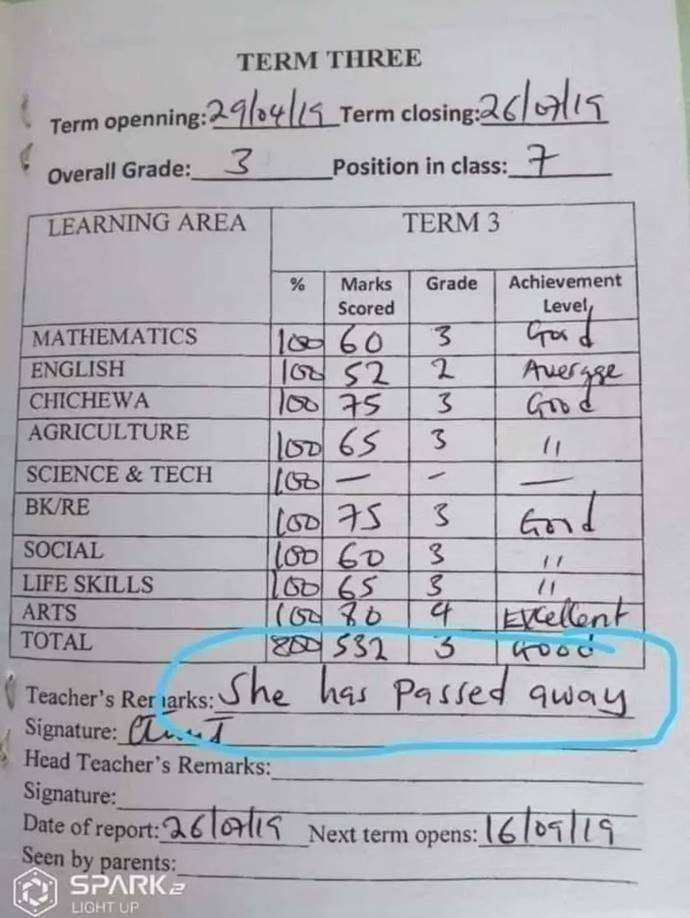 TERM THREE
Term openning: 29/04/19 Term closing: 26/07/19
Overall Grade: 3 Position in class: 7
LEARNING AREA TERM 3
% Marks Scored Grade Achievement Level
MATHEMATICS 100 60 3 Good
ENGLISH 100 52 2 Average
CHICHEWA 100 75 3 Good
AGRICULTURE 100 65 3 "
SCIENCE & TECH 100 — - —
BK/RE 100 75 3 Good
SOCIAL 100 60 3 "
LIFE SKILLS 100 65 3 "
ARTS 100 80 4 Excellent
TOTAL 800 532 3 Good
Teacher's Remarks: She has passed away
Signature:
Head Teacher's Remarks:
Signature:
Date of report: 26/07/19 Next term opens: 16/09/19
Seen by parents:
SPARK 2
LIGHT UP